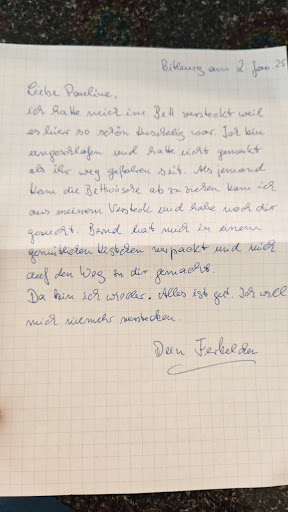 Bitburg am 2. Jan. 25
Liebe Pauline,
ich hatte mich im Bett versteckt weil
es hier so schön kuschelig war. Ich bin
eingeschlafen und hatte nicht gemerkt
als ihr weg gefahren seit. Als jemand
kam die Bettwäsche ab zu ziehen kam ich
aus meinem Versteck und habe nach dir
gesucht. Bernd hat mich in einem
gemütlichen Kistchen verpackt und mich
auf den Weg zu dir gemacht.
Da bin ich wieder. Alles ist gut. Ich will
mich niemehr verstecken.
Dein Ferkelchen